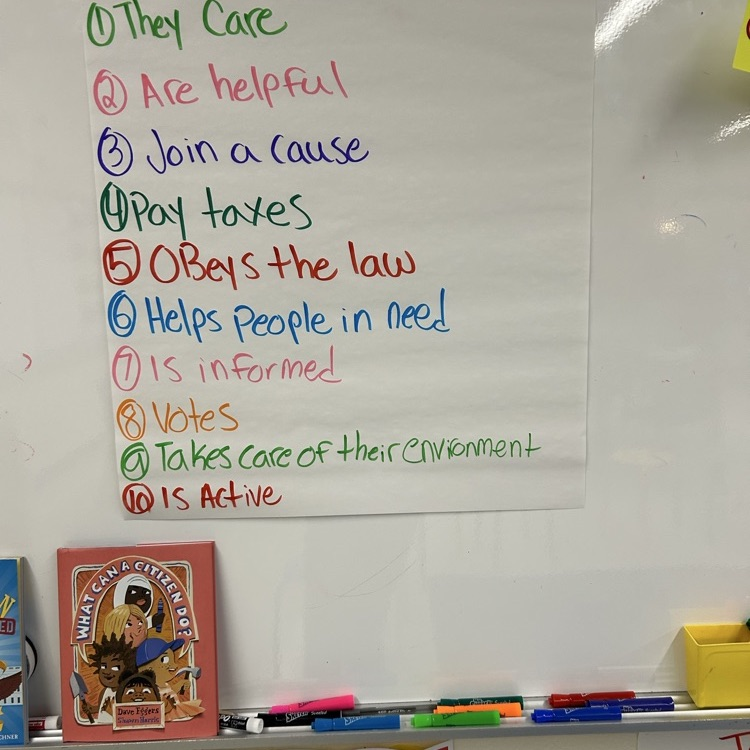 ① They Care
② Are helpful
③ Join a cause
④ Pay taxes
⑤ OBeys the law
⑥ Helps people in need
⑦ Is informed
⑧ Votes
⑨ Takes care of their envionment
⑩ Is Active
WHAT CAN A CITIZEN DO?
Dave Eggers
Shawn Harris